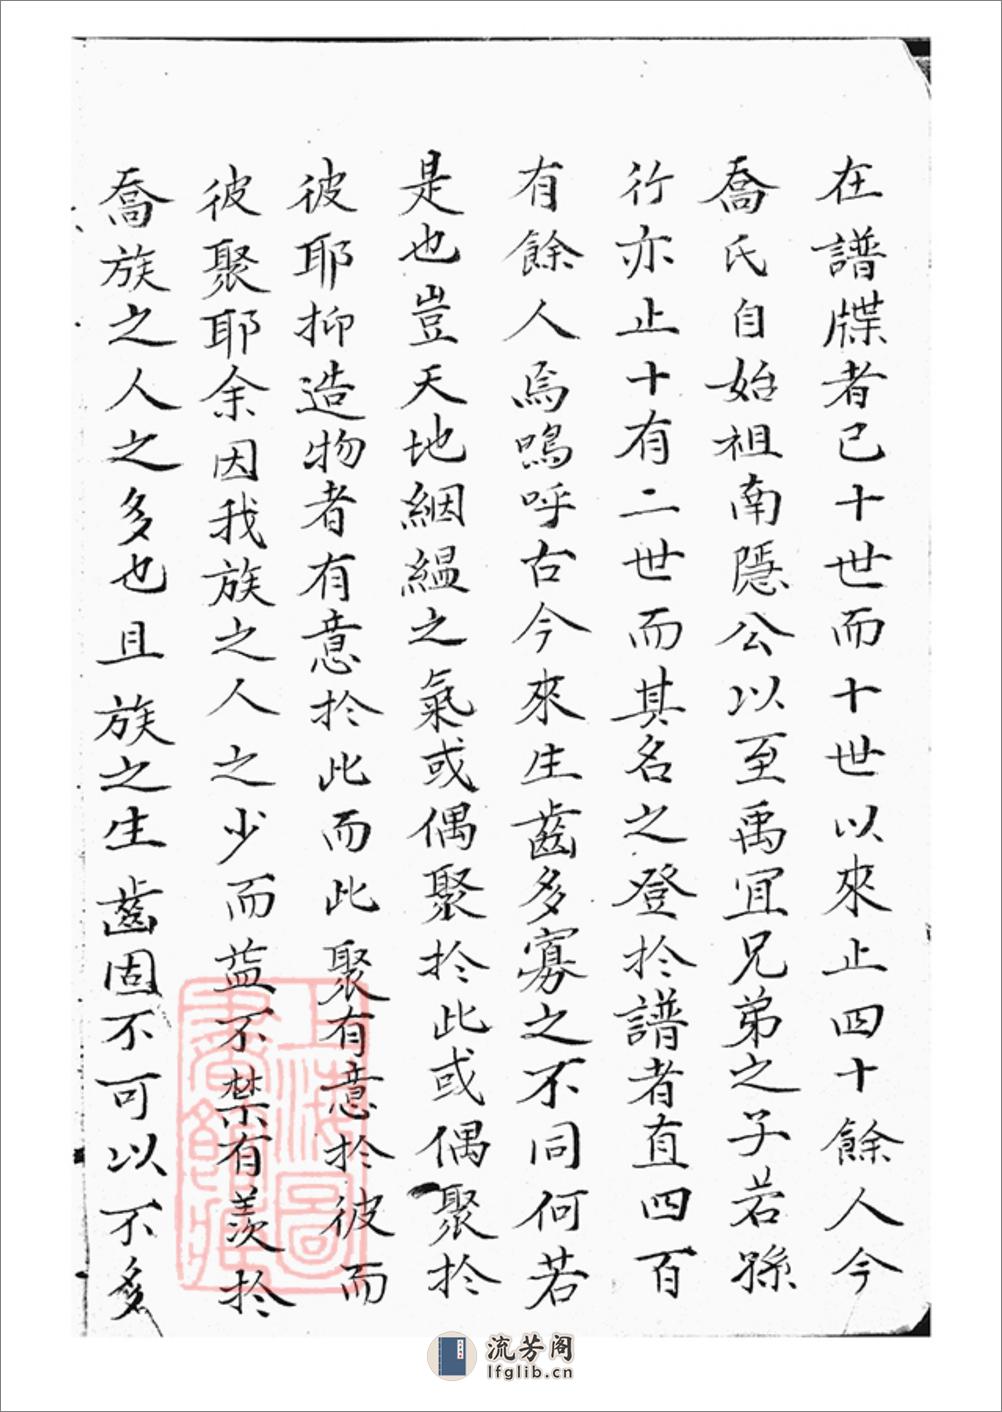 在譜牒者已十世而十世以來止四十餘人今
喬氏自始祖南隱公以至禹冝兄弟之子若孫
行亦止十有二世而其名之登於譜者直四百
有餘人焉嗚呼古今來生齒多寡之不同何若
是也豈天地絪縕之氣或偶聚於此或偶聚於
彼耶抑造物者有意於此而此聚有意於彼而
彼聚耶余因我族之人之少而益不禁有羨於
喬族之人之多也且族之生齒固不可以不多
上海圖書館藏
流芳阁
lfglib.cn